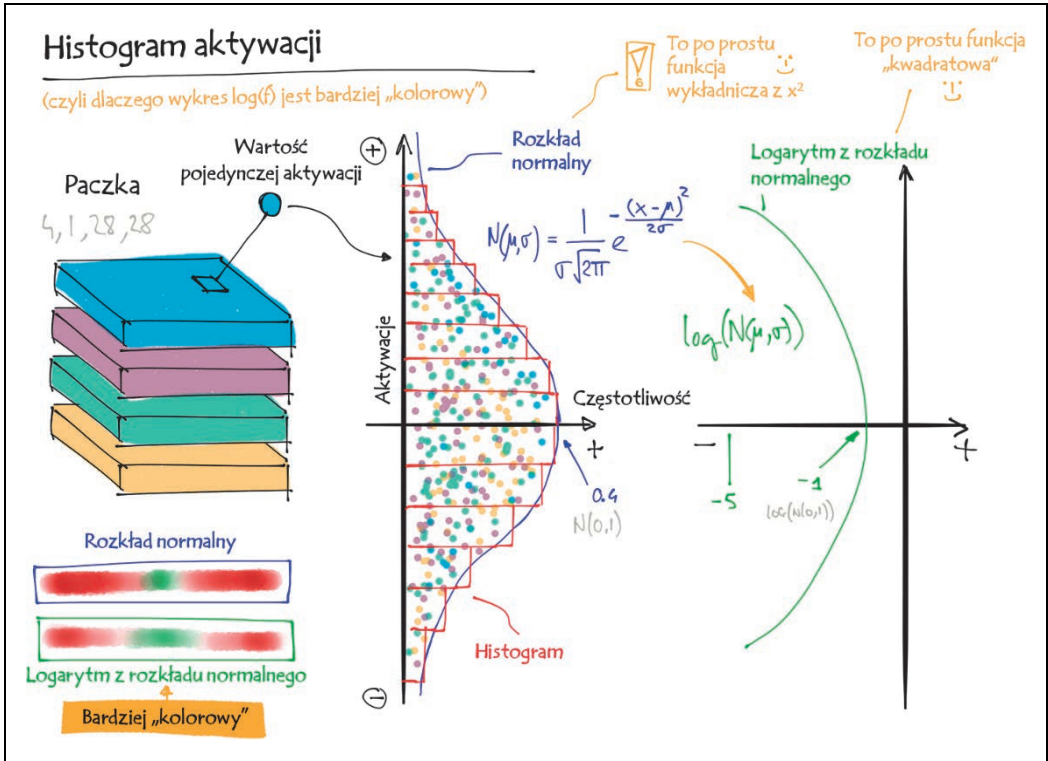 Histogram aktywacji
(czyli dlaczego wykres log(f) jest bardziej „kolorowy”)
To po prostu
funkcja
wykładnicza z x²
6
To po prostu funkcja
„kwadratowa“
Wartość
pojedynczej aktywacji
Paczka
4, 1, 28, 28
+
Rozkład
normalny
N(μ,σ) = 1/(σ√2π) e^(-(x-μ)²/2σ)
Logarytm z rozkładu
normalnego
log(N(μ,σ))
Aktywacje
Częstotliwość
+
0.4
N(0,1)
−
+
-5
-1
log(N(0,1))
Histogram
−
Rozkład normalny
Logarytm z rozkładu normalnego
Bardziej „kolorowy”